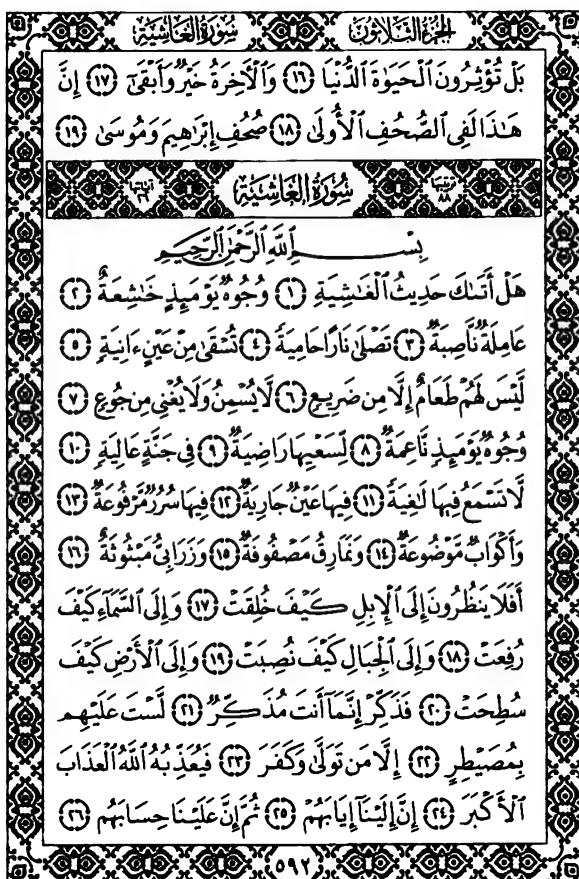 سُورَةُ الغَاشِيَةِ الجُزْءُ الثَّلَاثُونَ
بَلْ تُؤْثِرُونَ ٱلْحَيَوٰةَ ٱلدُّنْيَا ١٦ وَٱلْأَخِرَةُ خَيْرٌ وَأَبْقَىٰٓ ١٧ إِنَّ
هَٰذَا لَفِى ٱلصُّحُفِ ٱلْأُولَىٰ ١٨ صُحُفِ إِبْرَٰهِيمَ وَمُوسَىٰ ١٩
ترتيبها ٨٨ سُورَةُ الغَاشِيَةِ آياتها ٢٦
بِسْمِ ٱللَّهِ ٱلرَّحْمَٰنِ ٱلرَّحِيمِ
هَلْ أَتَىٰكَ حَدِيثُ ٱلْغَٰشِيَةِ ١ وُجُوهٌ يَوْمَئِذٍ خَٰشِعَةٌ ٢
عَامِلَةٌ نَّاصِبَةٌ ٣ تَصْلَىٰ نَارًا حَامِيَةً ٤ تُسْقَىٰ مِنْ عَيْنٍ ءَانِيَةٍ ٥
لَّيْسَ لَهُمْ طَعَامٌ إِلَّا مِن ضَرِيعٍ ٦ لَّا يُسْمِنُ وَلَا يُغْنِى مِن جُوعٍ ٧
وُجُوهٌ يَوْمَئِذٍ نَّاعِمَةٌ ٨ لِّسَعْيِهَا رَاضِيَةٌ ٩ فِى جَنَّةٍ عَالِيَةٍ ١٠
لَّا تَسْمَعُ فِيهَا لَٰغِيَةً ١١ فِيهَا عَيْنٌ جَارِيَةٌ ١٢ فِيهَا سُرُرٌ مَّرْفُوعَةٌ ١٣
وَأَكْوَابٌ مَّوْضُوعَةٌ ١٤ وَنَمَارِقُ مَصْفُوفَةٌ ١٥ وَزَرَابِىُّ مَبْثُوثَةٌ ١٦
أَفَلَا يَنظُرُونَ إِلَى ٱلْإِبِلِ كَيْفَ خُلِقَتْ ١٧ وَإِلَى ٱلسَّمَآءِ كَيْفَ
رُفِعَتْ ١٨ وَإِلَى ٱلْجِبَالِ كَيْفَ نُصِبَتْ ١٩ وَإِلَى ٱلْأَرْضِ كَيْفَ
سُطِحَتْ ٢٠ فَذَكِّرْ إِنَّمَآ أَنتَ مُذَكِّرٌ ٢١ لَّسْتَ عَلَيْهِم
بِمُصَيْطِرٍ ٢٢ إِلَّا مَن تَوَلَّىٰ وَكَفَرَ ٢٣ فَيُعَذِّبُهُ ٱللَّهُ ٱلْعَذَابَ
ٱلْأَكْبَرَ ٢٤ إِنَّ إِلَيْنَآ إِيَابَهُمْ ٢٥ ثُمَّ إِنَّ عَلَيْنَا حِسَابَهُم ٢٦
٥٩٢